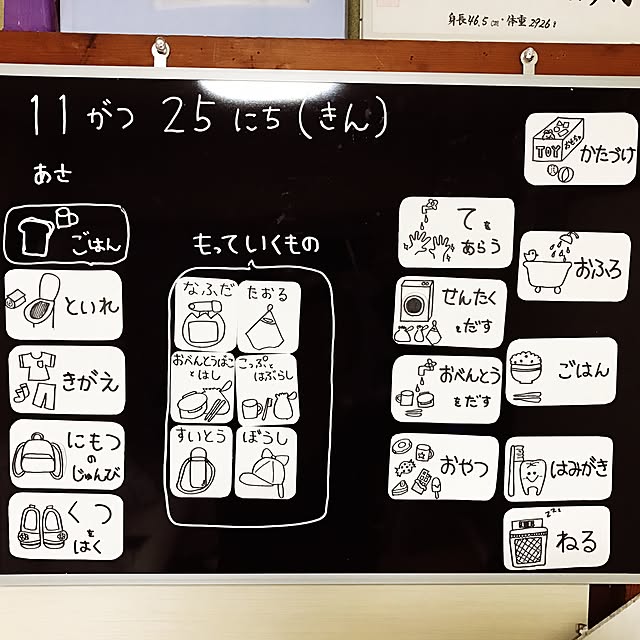 身長46.5cm・体重2926g
11がつ 25にち(きん)
あさ
ごはん
といれ
きがえ
にもつ
の
じゅんび
くつ
を
はく
もっていくもの
なふだ
たおる
おべんとうばこ
とはし
こっぷと
はぶらし
すいとう
ぼうし
てを
あらう
せんたく
をだす
おべんとう
をだす
おやつ
TOY
かたづけ
おふろ
ごはん
はみがき
zzz
ねる